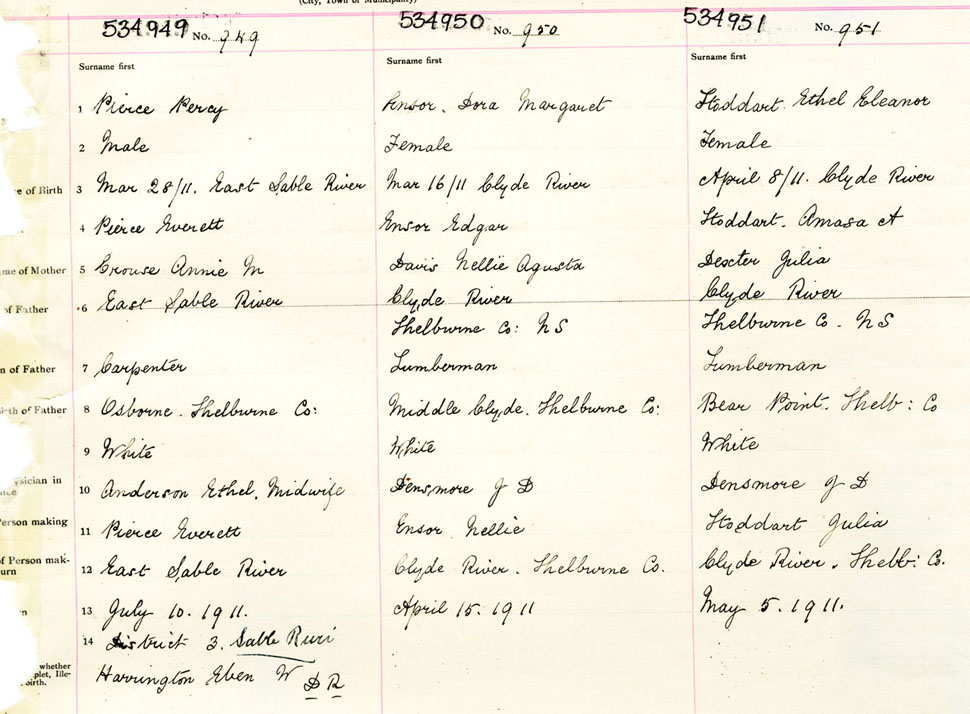 (City, Town or Municipality)
534949 No. 949
534950 No. 950
534951 No. 951
Surname first
Surname first
Surname first
1 Pierce Percy
Ensor. Dora Margaret
Stoddart. Ethel Eleanor
2 Male
Female
Female
e of Birth 3 Mar 28/11. East Sable River
Mar 16/11 Clyde River
April 8/11. Clyde River
4 Pierce Everett
Ensor Edgar
Stoddart. Amasa A
me of Mother 5 Crouse Annie M
Davis Nellie Agusta
Dexter Julia
of Father 6 East Sable River
Clyde River
Clyde River
Shelburne Co: NS
Shelburne Co. NS
n of Father 7 Carpenter
Lumberman
Lumberman
th of Father 8 Osborne. Shelburne Co:
Middle Clyde. Shelburne Co:
Bear Point. Shelb: Co
9 White
White
White
ysician in
10 Anderson Ethel, Midwife
Densmore J D
Densmore J D
erson making
11 Pierce Everett
Ensor Nellie
Stoddart Julia
of Person mak-
urn
12 East Sable River
Clyde River. Shelburne Co.
Clyde River. Shelb: Co.
n 13 July 10. 1911.
April 15. 1911
May 5. 1911.
14 District 3. Sable River
whether
plet, Ille-
birth.
Harrington Eben W D R